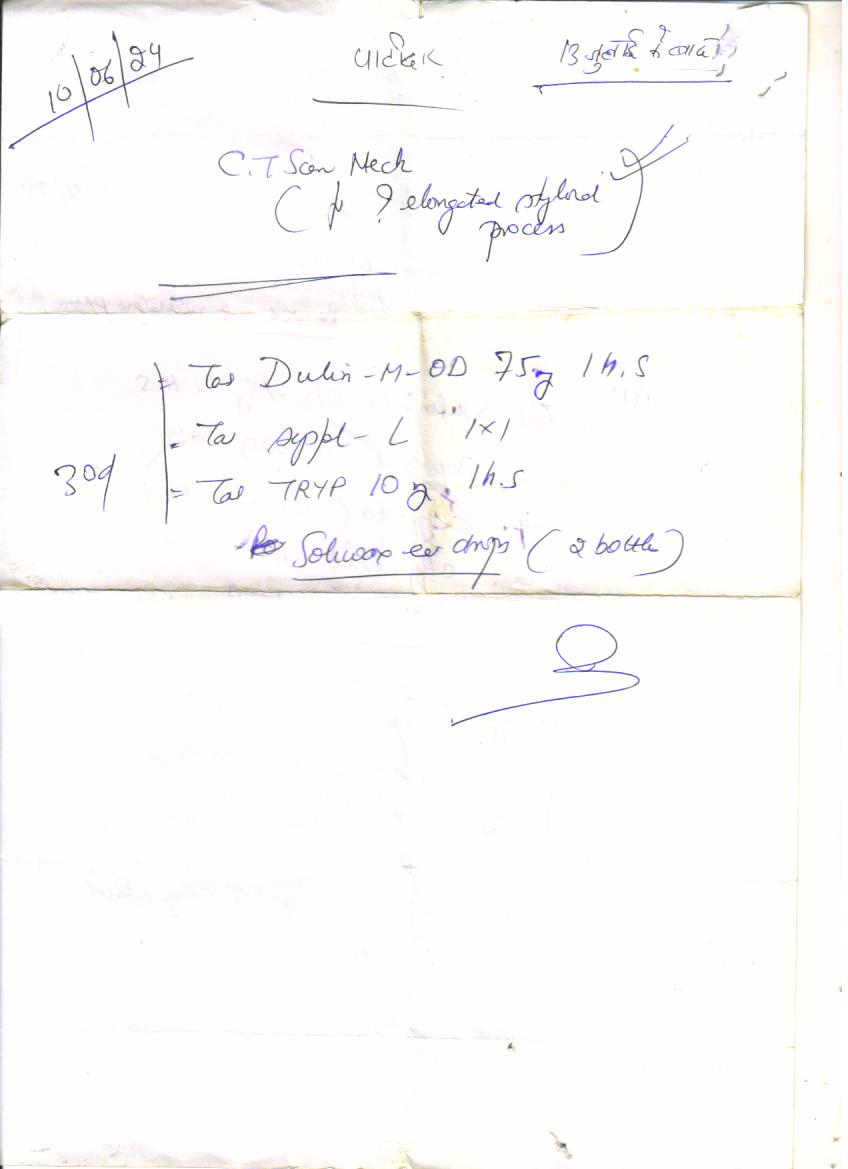 10/06/24
13 जुलाई में
C.T Scan Neck
( ? elongated styloid
process )
Tab Dulin-M-OD 75mg 1 h.s
Tab L 1x1
30d
Tab TRYP 10mg. 1h.s
Soliwax ear drops (2 bottle)